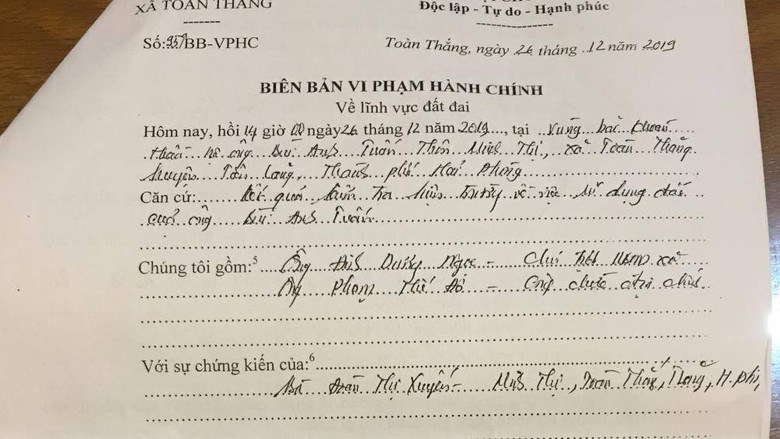 XÃ TOÀN THẮNG
Độc lập - Tự do - Hạnh phúc
Số: /BB-VPHC
Toàn Thắng, ngày 26 tháng 12 năm 2019
BIÊN BẢN VI PHẠM HÀNH CHÍNH
Về lĩnh vực đất đai
Hôm nay, hồi 14 giờ 00 ngày 26 tháng 12 năm 2019, tại Vùng bãi
ông Bùi Anh Tuấn Thôn Minh Thị, xã Toàn Thắng
huyện Tiên Lãng, Thành phố Hải Phòng
Căn cứ: Kết quả kiểm tra hiện trường về việc sử dụng đất
của ông Bùi Anh Tuấn
Chúng tôi gồm:5 Ông Duy Ngọc - Chủ tịch UBND xã
Ông Phạm Thế - Công chức địa chính
Với sự chứng kiến của:6
Bà Đoàn Thị Xuyến - Minh Thị, Toàn Thắng, H. phòng